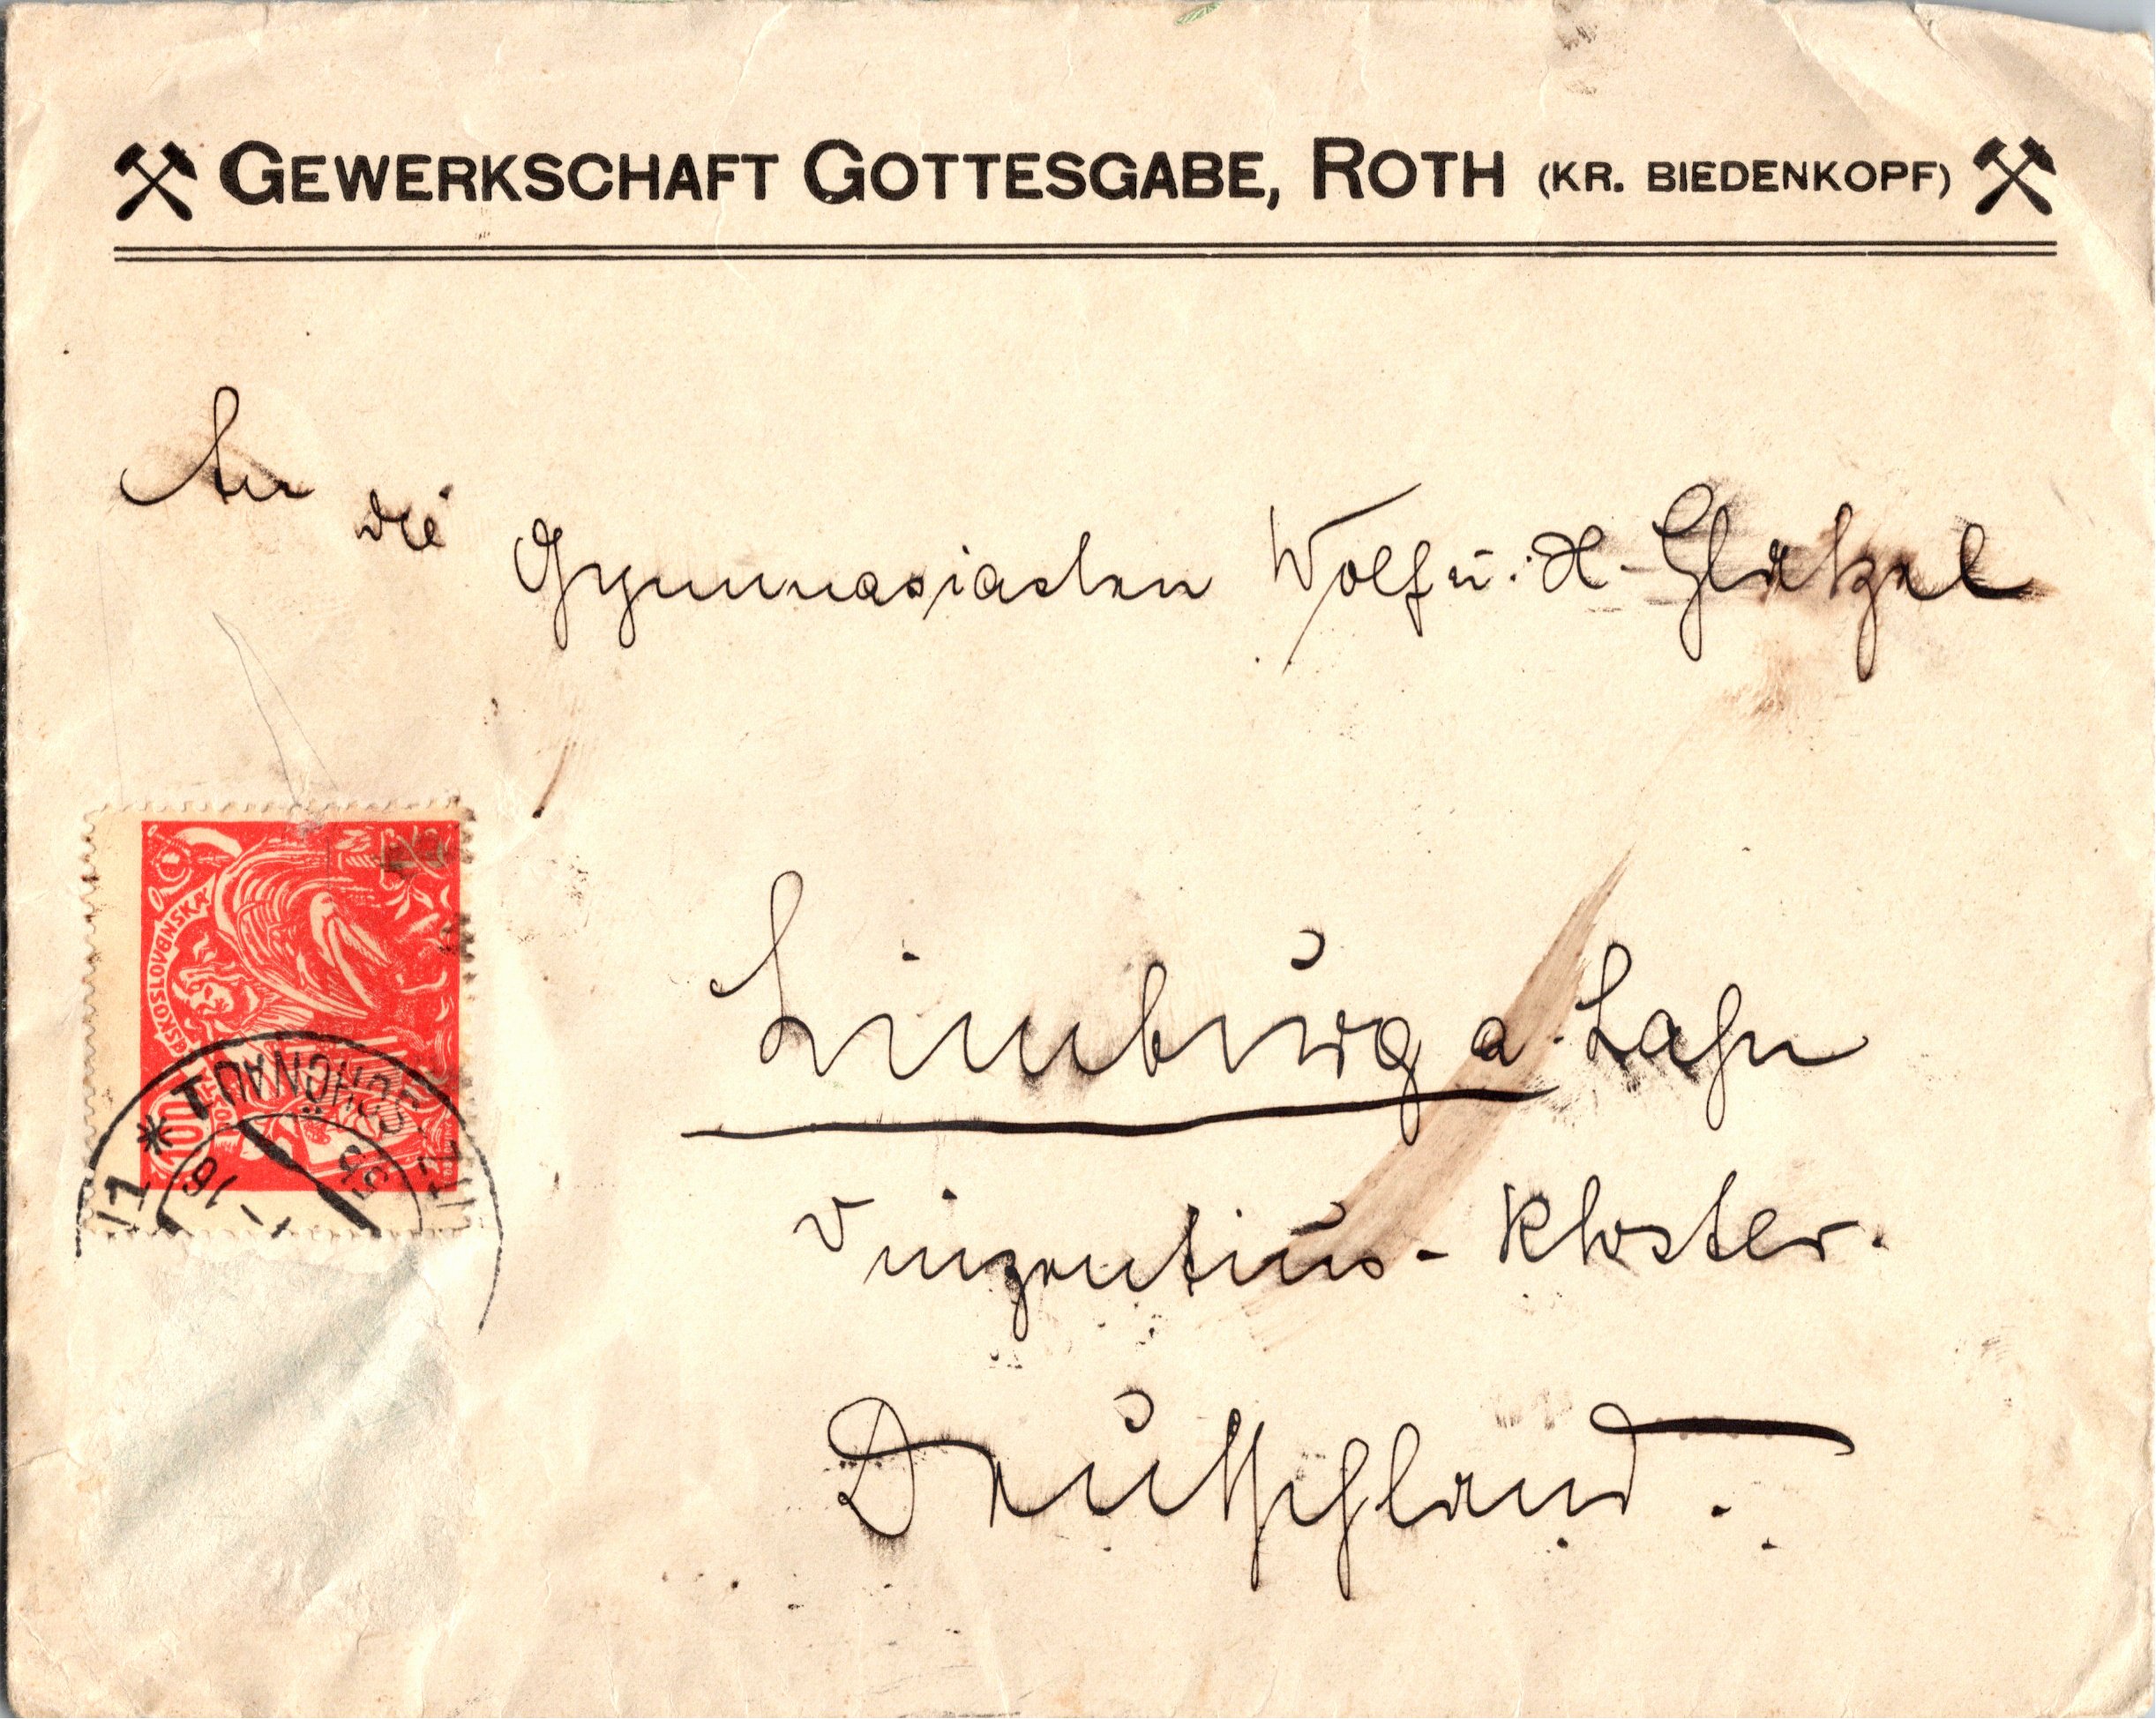 GEWERKSCHAFT GOTTESGABE, ROTH (KR. BIEDENKOPF)
An
die Gymnasiasten Wolf u. H. Glatzel
Limburg a. Lahn
Vinzentius-Kloster.
Deutschland.
ČESKOSLOVENSKÁ
100